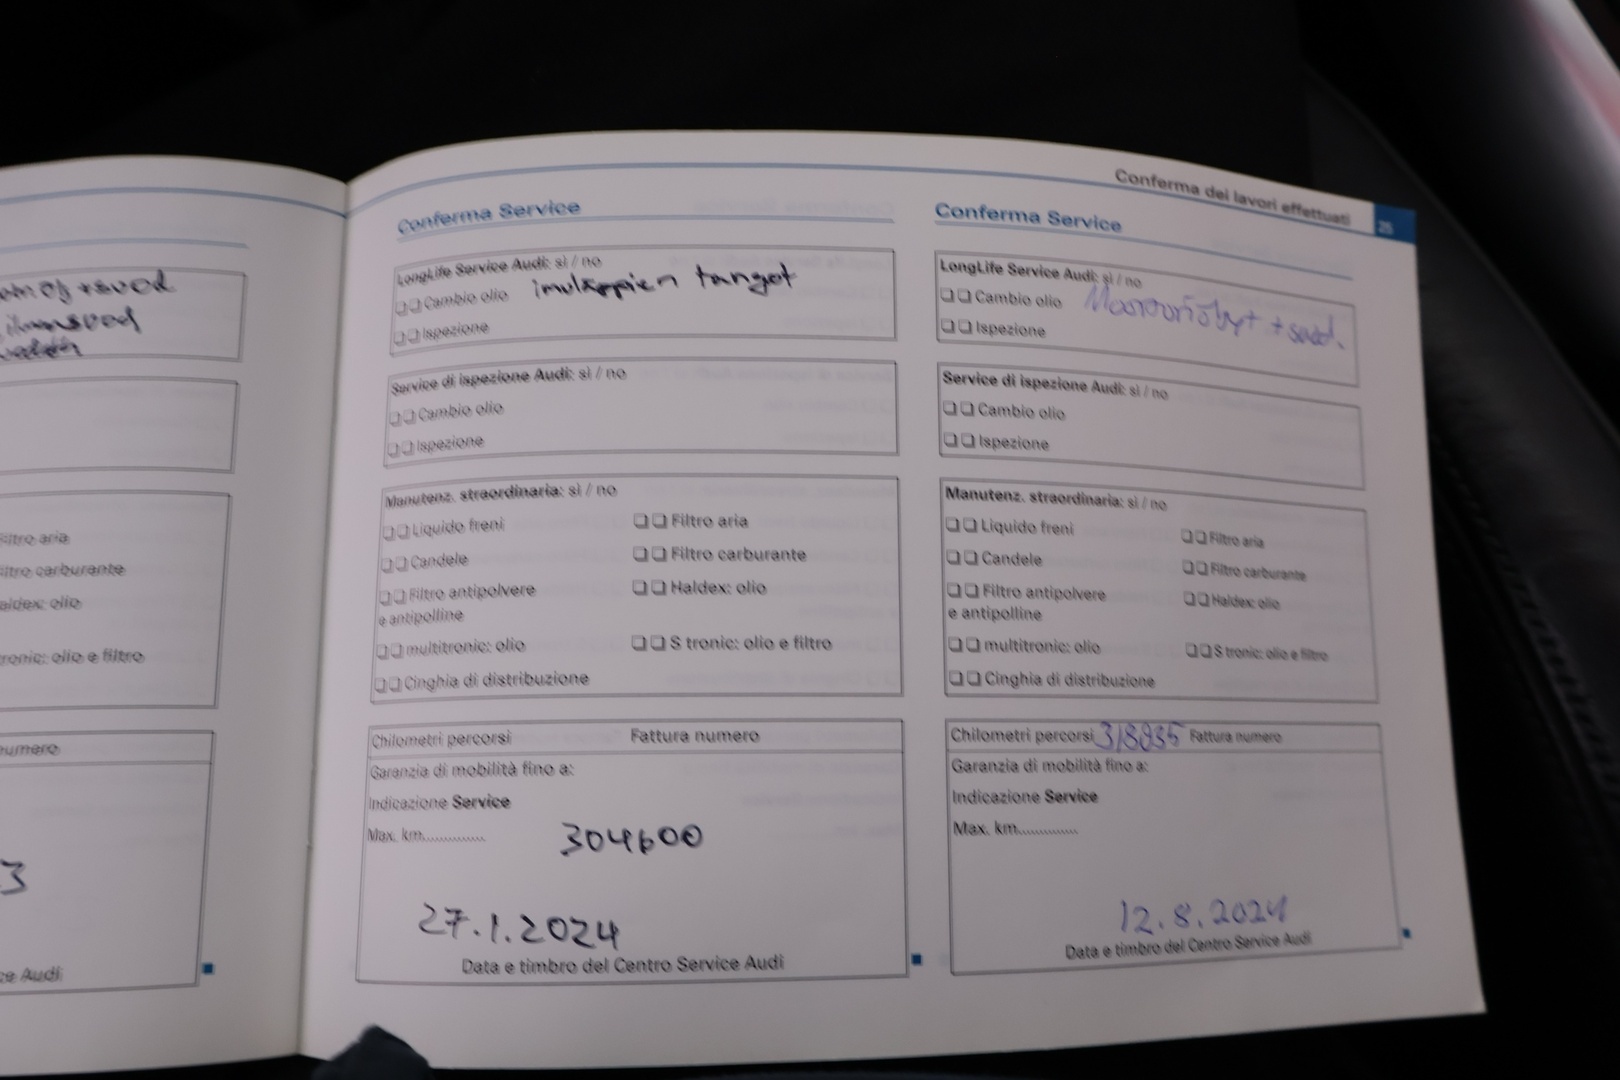 ilmansuod
Filtro aria
Filtro carburante
Haldex: olio
tronic: olio e filtro
numero
3
ce Audi
Conferma Service
LongLife Service Audi: sì / no
❑❑ Cambio olio imuläppien tangot
❑❑ Ispezione
Service di ispezione Audi: sì / no
❑❑ Cambio olio
❑❑ Ispezione
Manutenz. straordinaria: sì / no
❑❑ Liquido freni ❑❑ Filtro aria
❑❑ Candele ❑❑ Filtro carburante
❑❑ Filtro antipolvere ❑❑ Haldex: olio
e antipolline
❑❑ multitronic: olio ❑❑ S tronic: olio e filtro
❑❑ Cinghia di distribuzione
Chilometri percorsi Fattura numero
Garanzia di mobilità fino a:
Indicazione Service
Max. km..............
304600
27.1.2024
Data e timbro del Centro Service Audi
Conferma dei lavori effettuati 25
Conferma Service
LongLife Service Audi: sì / no
❑❑ Cambio olio
❑❑ Ispezione
Service di ispezione Audi: sì / no
❑❑ Cambio olio
❑❑ Ispezione
Manutenz. straordinaria: sì / no
❑❑ Liquido freni ❑❑ Filtro aria
❑❑ Candele ❑❑ Filtro carburante
❑❑ Filtro antipolvere ❑❑ Haldex: olio
e antipolline
❑❑ multitronic: olio ❑❑ S tronic: olio e filtro
❑❑ Cinghia di distribuzione
Chilometri percorsi 318835 Fattura numero
Garanzia di mobilità fino a:
Indicazione Service
Max. km..............
12.8.2024
Data e timbro del Centro Service Audi